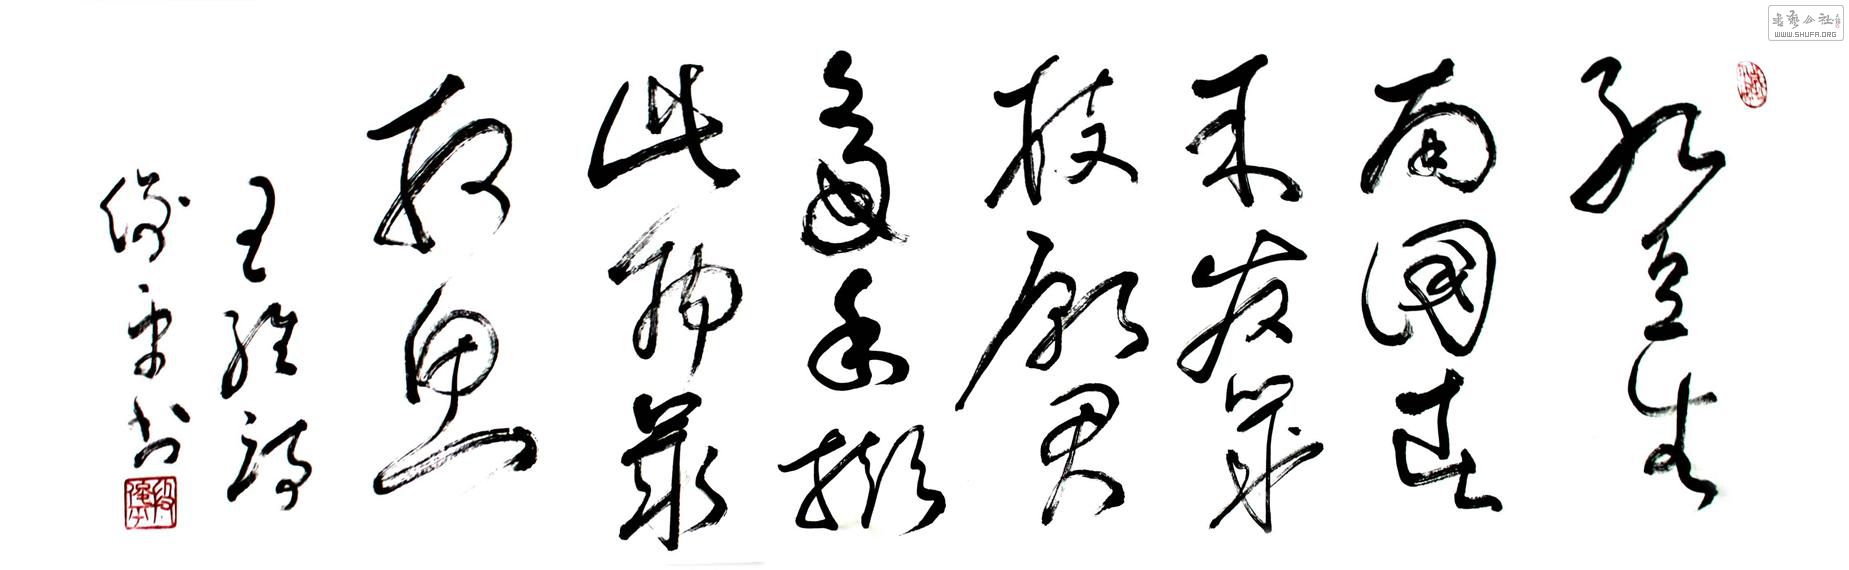 红豆生
南國春
来发幾
枝願君
多采撷
此物最
相思
王维诗
俊平书
段俊平
书艺公社
WWW.SHUFA.ORG